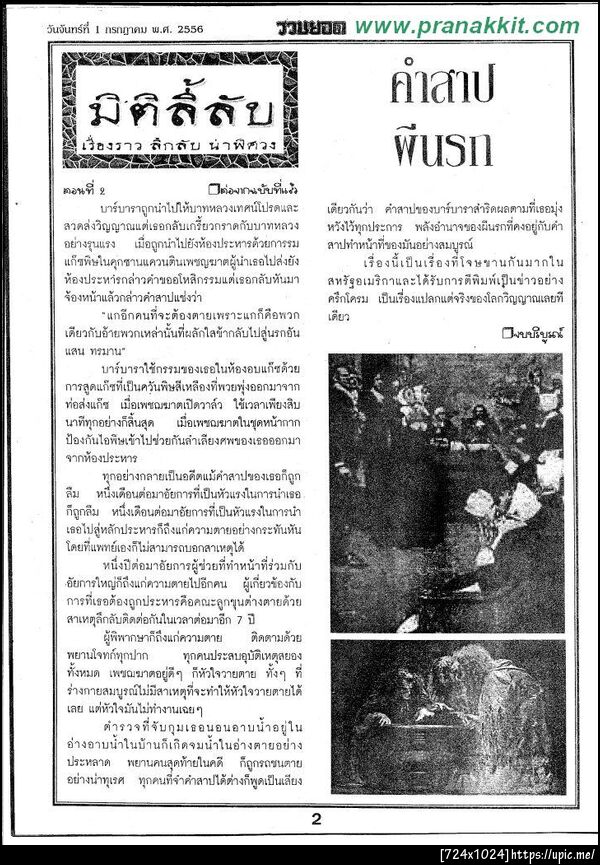 วันจันทร์ที่ 1 กรกฎาคม พ.ศ. 2556
รวมยอด www.pranakkit.com
มิติลี้ลับ
เรื่องราว ลึกลับ น่าพิศวง
คำสาป
ผีนรก
ตอนที่ 2
ต่อจากฉบับที่แล้ว
บาร์บาราถูกนำไปให้บาทหลวงเทศน์โปรดและ
สวดส่งวิญญาณแต่เธอกลับเกรี้ยวกราดกับบาทหลวง
อย่างรุนแรง เมื่อถูกนำไปยังห้องประหารด้วยการรม
แก๊สพิษในคุกซานแควนตินเพชฌฆาตผู้นำเธอไปส่งยัง
ห้องประหารกล่าวคำขอโหสิกรรมแต่เธอกลับหันมา
จ้องหน้าแล้วกล่าวคำสาปแช่งว่า
"แกอีกคนที่จะต้องตายเพราะแกก็คือพวก
เดียวกับอ้ายพวกเหล่านั้นที่ผลักใสข้ากลับไปสู่นรกอัน
แสน ทรมาน"
บาร์บาราใช้กรรมของเธอในห้องอบแก๊สด้วย
การสูดแก๊สที่เป็นควันพิษสีเหลืองที่พวยพุ่งออกมาจาก
ท่อส่งแก๊ซ เมื่อเพชฌฆาตเปิดวาล์ว ใช้เวลาเพียงสิบ
นาทีทุกอย่างก็สิ้นสุด เมื่อเพชฌฆาตในชุดหน้ากาก
ป้องกันไอพิษเข้าไปช่วยกันลำเลียงศพของเธอออกมา
จากห้องประหาร
ทุกอย่างกลายเป็นอดีตแม้คำสาปของเธอก็ถูก
ลืม หนึ่งเดือนต่อมาอัยการที่เป็นหัวแรงในการนำเธอ
ก็ถูกลืม หนึ่งเดือนต่อมาอัยการที่เป็นหัวแรงในการนำ
เธอไปสู่หลักประหารก็ถึงแก่ความตายอย่างกระทันหัน
โดยที่แพทย์เองก็ไม่สามารถบอกสาเหตุได้
หนึ่งปีต่อมาอัยการผู้ช่วยที่ทำหน้าที่ร่วมกับ
อัยการใหญ่ก็ถึงแก่ความตายไปอีกคน ผู้เกี่ยวข้องกับ
การที่เธอต้องถูกประหารคือคณะลูกขุนต่างตายด้วย
สาเหตุลึกลับติดต่อกันในเวลาต่อมาอีก 7 ปี
ผู้พิพากษาก็ถึงแก่ความตาย ติดตามด้วย
พยานโจทก์ทุกปาก ทุกคนประสบอุบัติเหตุสยอง
ทั้งหมด เพชฌฆาตอยู่ดีๆ ก็หัวใจวายตาย ทั้งๆ ที่
ร่างกายสมบูรณ์ไม่มีสาเหตุที่จะทำให้หัวใจวายตายได้
เลย แต่หัวใจมันไม่ทำงานเฉยๆ
ตำรวจที่จับกุมเธอนอนอาบน้ำอยู่ใน
อ่างอาบน้ำในบ้านก็เกิดจมน้ำในอ่างตายอย่าง
ประหลาด พยานคนสุดท้ายในคดี ก็ถูกรถชนตาย
อย่างน่าทุเรศ ทุกคนที่จำคำสาปได้ต่างก็พูดเป็นเสียง
เดียวกันว่า คำสาปของบาร์บาราสำริดผลตามที่เธอมุ่ง
หวังไว้ทุกประการ พลังอำนาจของผีนรกที่คงอยู่กับคำ
สาปทำหน้าที่ของมันอย่างสมบูรณ์
เรื่องนี้เป็นเรื่องที่โจษขานกันมากใน
สหรัฐอเมริกาและได้รับการตีพิมพ์เป็นข่าวอย่าง
ครึกโครม เป็นเรื่องแปลกแต่จริงของโลกวิญญาณเลยที
เดียว
จบบริบูรณ์
2
[724x1024]https://upic.me/